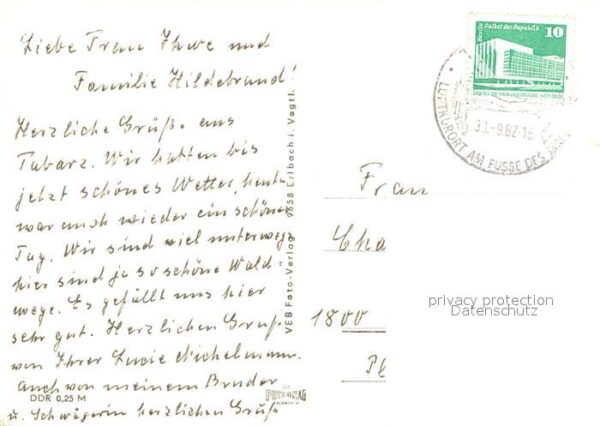 Liebe Frau Ihwe und
Familie Hildebrand!
Herzliche Grüße aus
Tabarz. Wir hatten bis
jetzt schönes Wetter, heute
war auch wieder ein schöner
Tag. Wir sind viel unterwegs
hier sind ja so schöne Wald-
wege. Es gefällt uns hier
sehr gut. Herzlichen Gruß
von Ihrer Lucie Michelmann.
auch von meinem Bruder
u. Schwägerin herzlichen Gruß
DDR 0,25 M
VEB Foto-Verlag 9658 Erlbach i. Vogtl.
Berlin Palast der Republik
10
LUFTKURORT AM FUSSE DES
30.-9.82-18
Frau
Cha
1800
privacy protection
Datenschutz